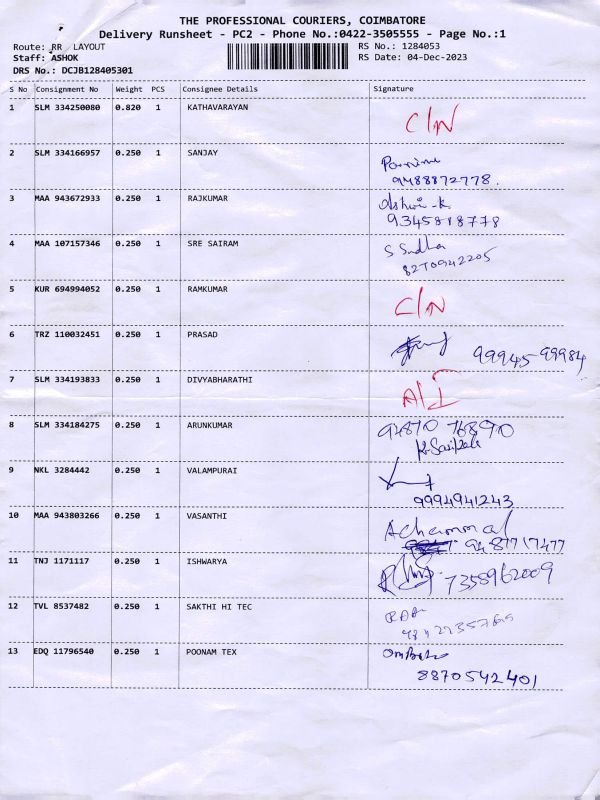 THE PROFESSIONAL COURIERS, COIMBATORE
Delivery Runsheet - PC2 - Phone No.:0422-3505555 - Page No.:1
Route: RR LAYOUT RS No.: 1284053
Staff: ASHOK RS Date: 04-Dec-2023
DRS No.: DCJB128405301
S No Consignment No Weight PCS Consignee Details Signature
1 SLM 334250080 0.820 1 KATHAVARAYAN
C/N
2 SLM 334166957 0.250 1 SANJAY
9488872778.
3 MAA 943672933 0.250 1 RAJKUMAR
Ashwi-k
9345818778
4 MAA 107157346 0.250 1 SRE SAIRAM
S Sudha
8270942205
5 KUR 694994052 0.250 1 RAMKUMAR
C/N
6 TRZ 110032451 0.250 1 PRASAD
99945 99984
7 SLM 334193833 0.250 1 DIVYABHARATHI
A/I
8 SLM 334184275 0.250 1 ARUNKUMAR
94870 76890
9 NKL 3284442 0.250 1 VALAMPURAI
9994941243
10 MAA 943803266 0.250 1 VASANTHI
Achammal
9487717477
11 TNJ 1171117 0.250 1 ISHWARYA
7358962009
12 TVL 8537482 0.250 1 SAKTHI HI TEC
13 EDQ 11796540 0.250 1 POONAM TEX
8870542401